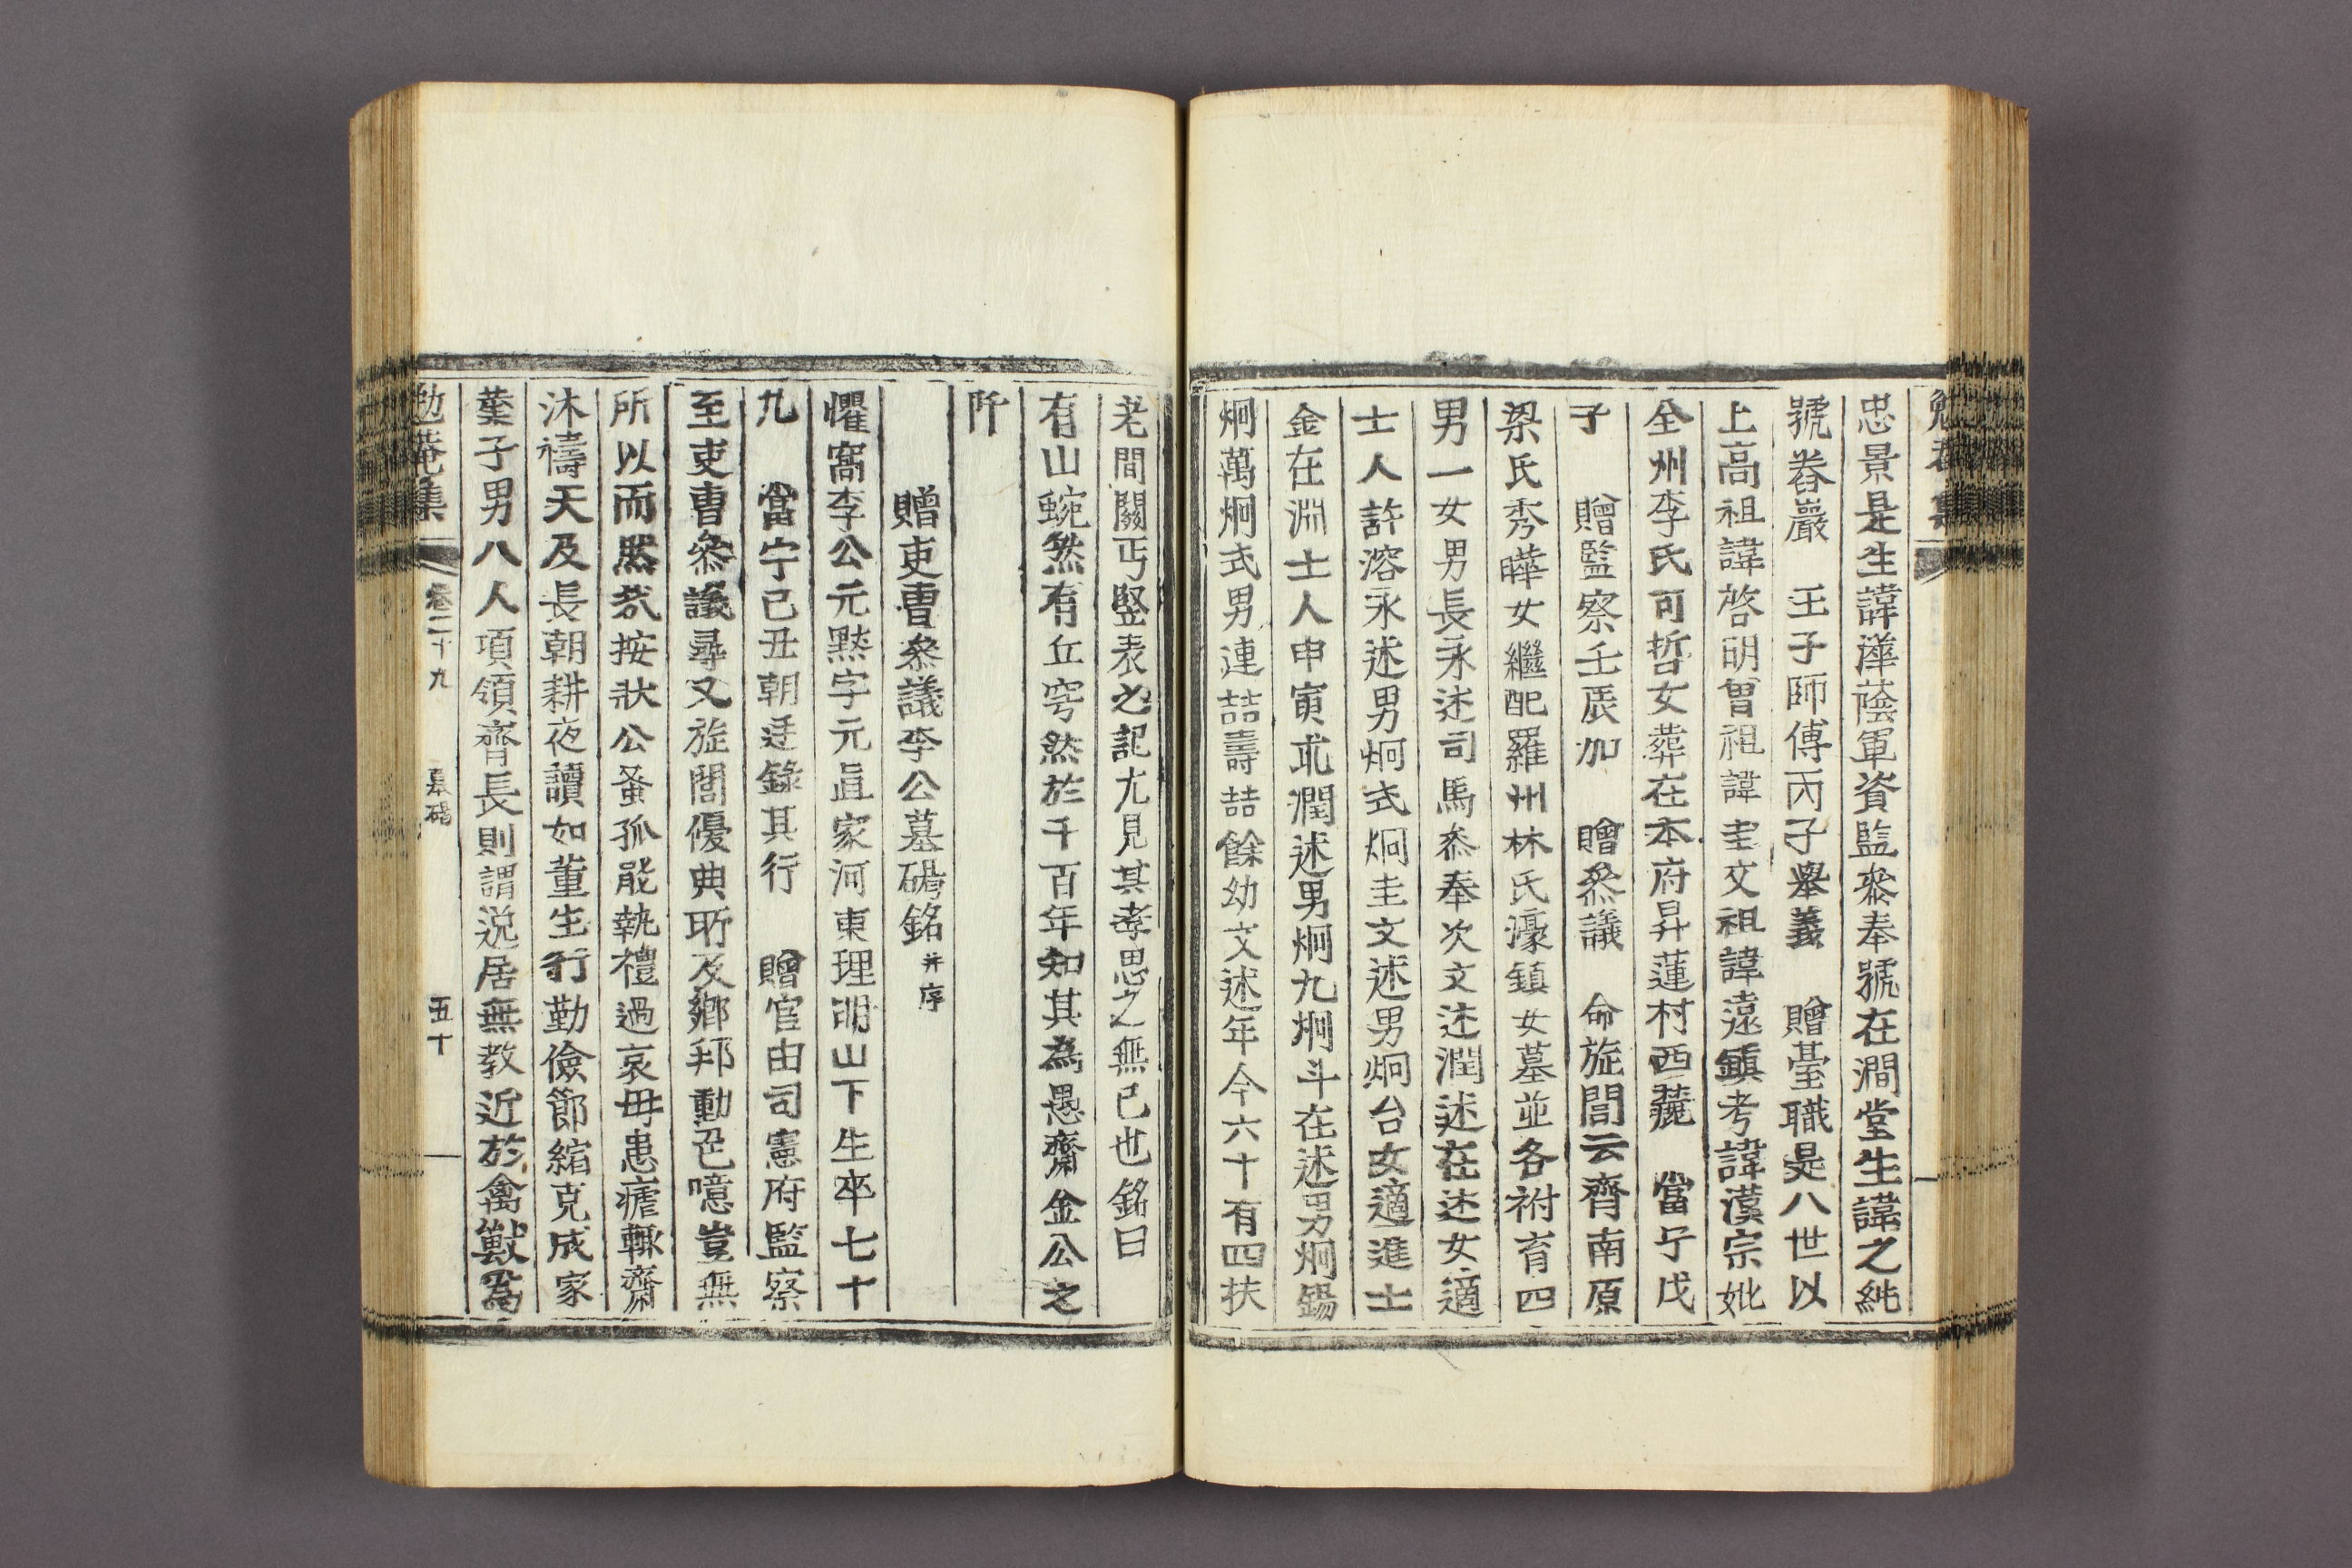 勉菴集
忠景是生諱澕蔭軍資監叅奉號在澗堂生諱之純
號碞巖　王子師傅丙子擧義　贈臺職是八世以
上高祖諱啓明曾祖諱圭文祖諱遠鎭考諱漢宗妣
全州李氏可哲女葬在本府昇蓮村西麓　當宁戊
子　贈監察壬辰加　贈叅議　命旌閭云齊南原
梁氏秀曄女繼配羅州林氏濠鎭女墓並各祔育四
男一女男長永述司馬叅奉次文述潤述在述女適
士人許溶永述男炯式炯圭文述男炯台女適進士
金在淵士人申寅求潤述男炯九炯斗在述男炯錫
炯萬炯式男連喆壽喆餘幼文述年今六十有四扶
老間關丐竪表之記尤見其孝思之無已也銘曰
有山蜿然有丘穹然於千百年知其爲愚齋金公之
阡
贈吏曹叅議李公墓碣銘幷序
懼窩李公元黙字元直家河東理明山下生卒七十
九　當宁己丑朝廷錄其行　贈官由司憲府監察
至吏曹叅議尋又旌閭優典所及鄕邦動色噫豈無
所以而然哉按狀公蚤孤能執禮過哀毋患瘧輙齋
沐禱天及長朝耕夜讀如董生行勤儉節縮克成家
業子男八人項領齊長則謂逸居無教近於禽獸爲
勉菴集　卷二十九　墓碣　五十